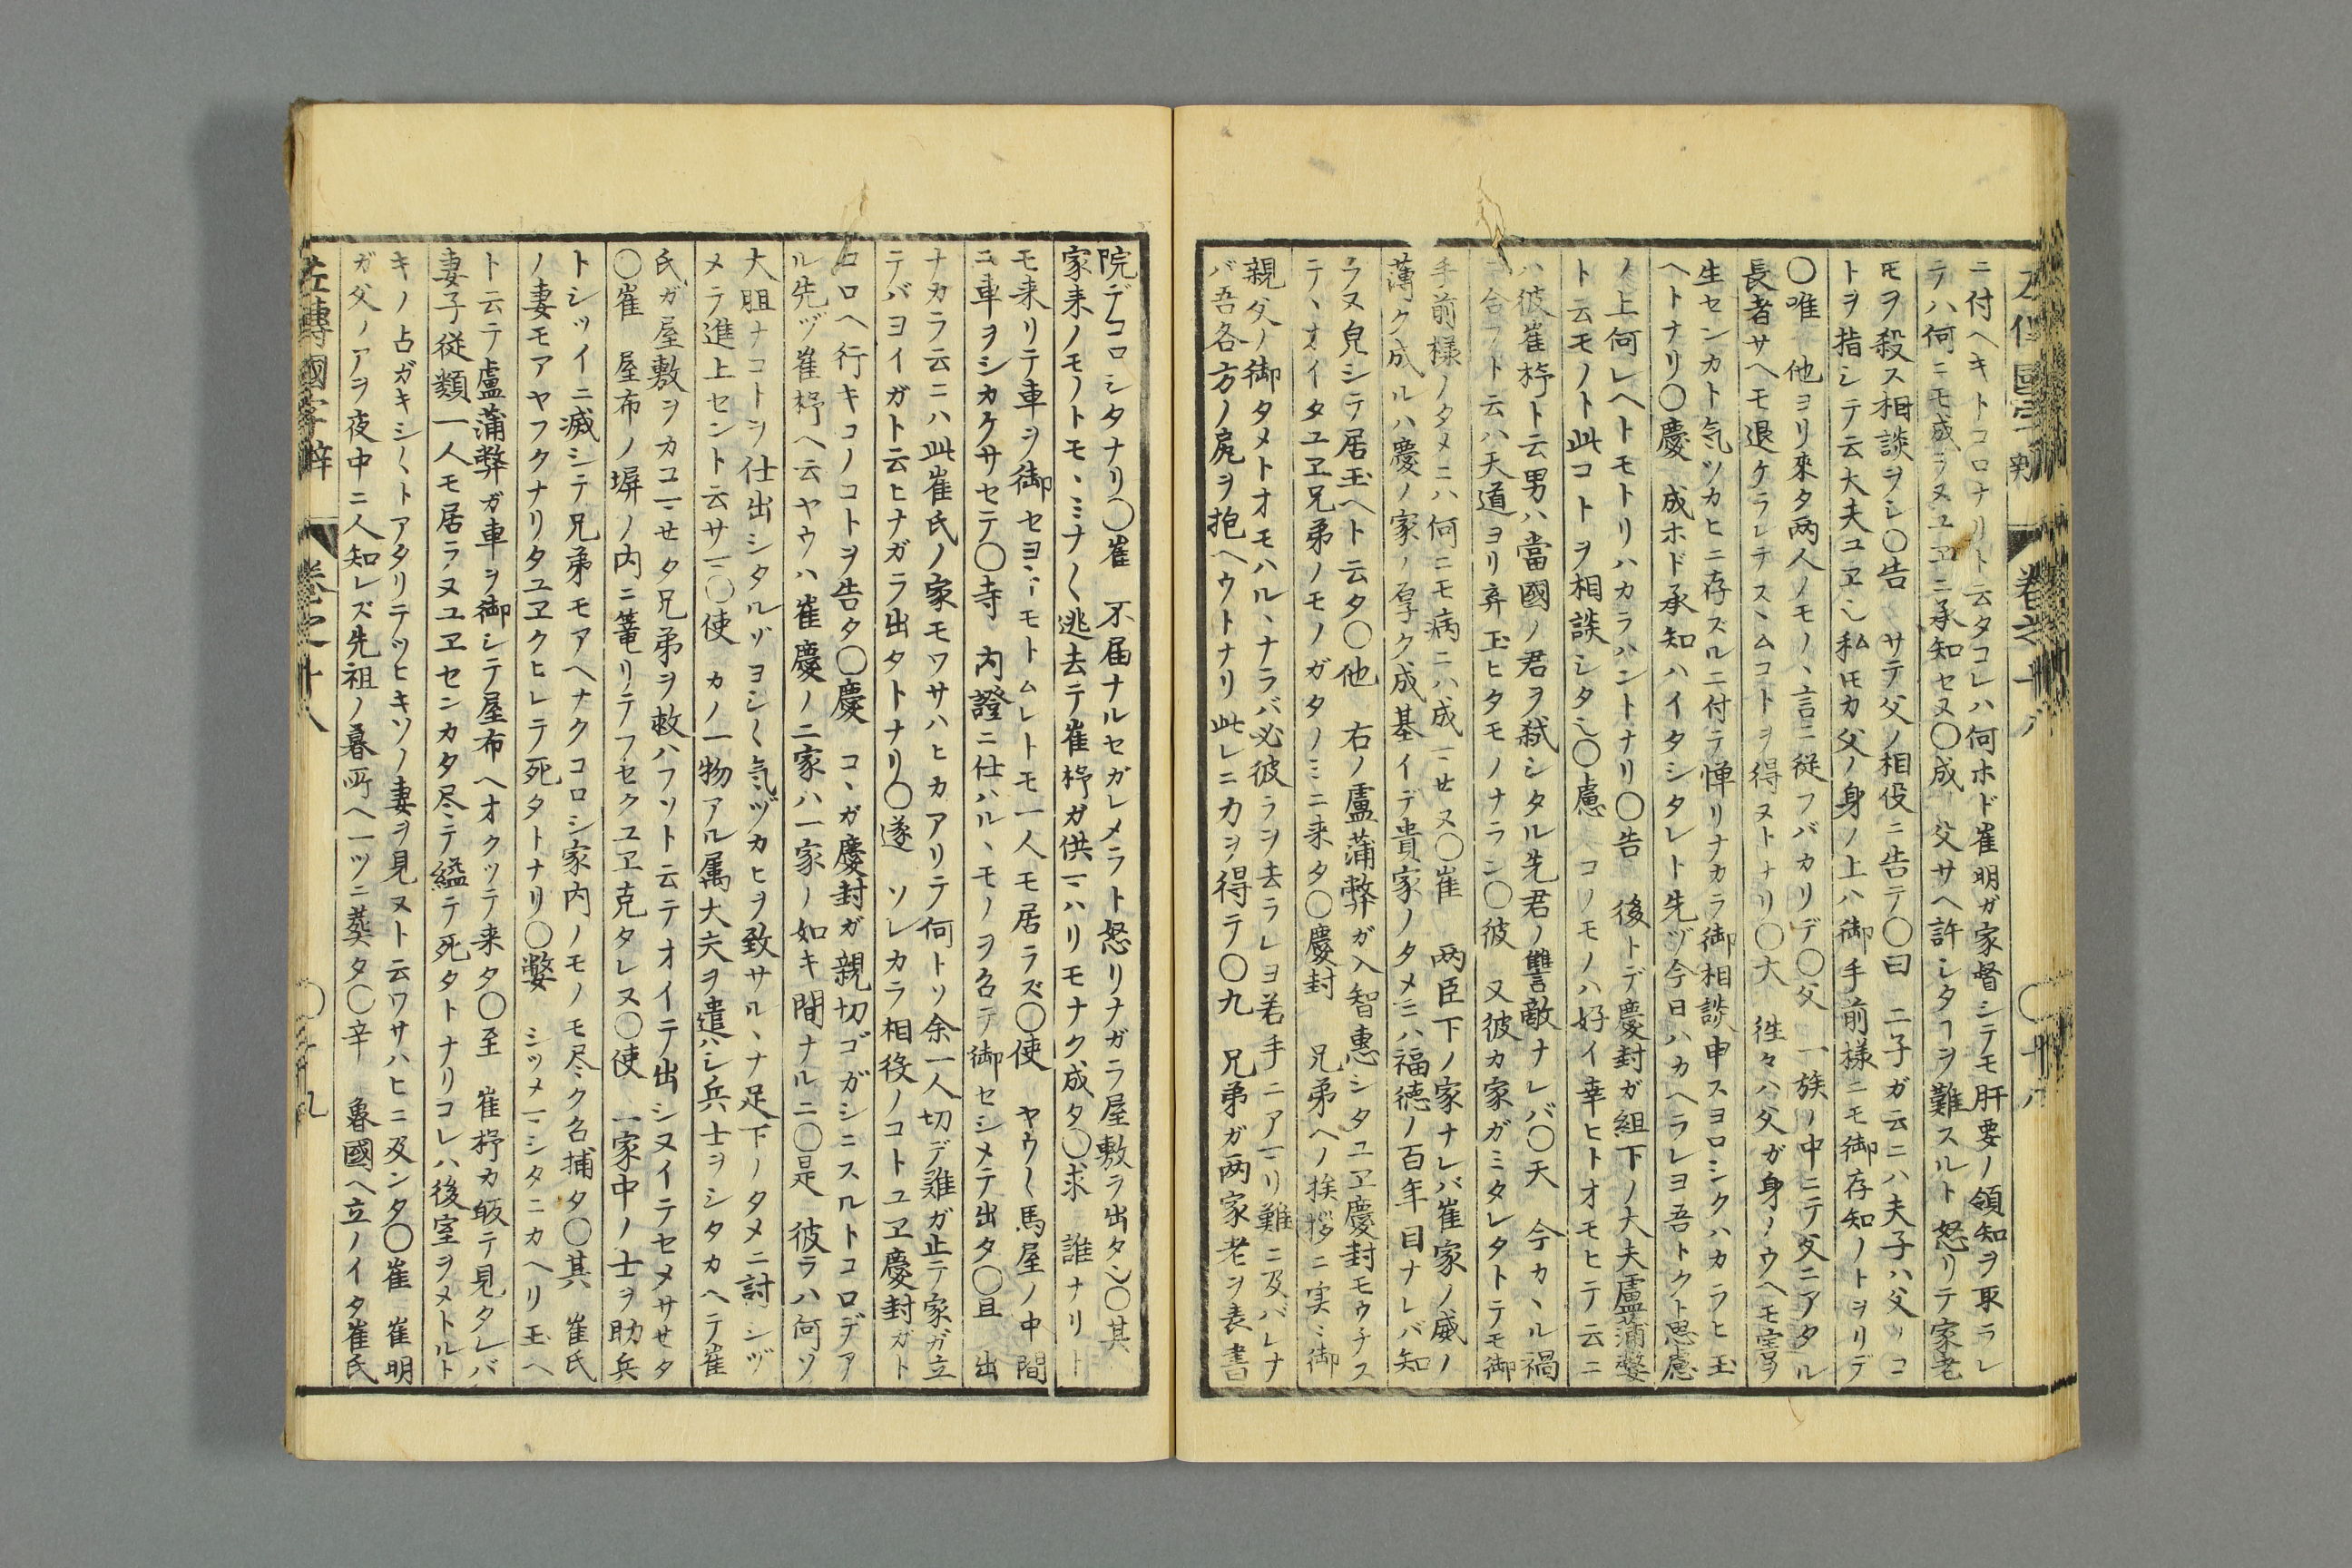 ニ付ヘキトコロナリト云タコレハ何ホド崔明ガ家督シテモ肝要ノ領知ヲ取ラレ
テハ何ニモ成ラヌユヱニ承知セヌ〇成 父サヘ許シタヿヲ難スルト怒リテ家老
モヲ殺ス相談ヲシ〇告 サテ父ノ相役ニ告テ〇曰 二子ガ云ニハ夫子ハ父ノコ
トヲ指シテ云大夫ユヱ乄私𪜈カ父ノ身ノ上ハ御手前様ニモ御存知ノトヲリデ
〇唯 他ヨリ來タ両人ノモノヽ言ニ従フバカリデ〇父 一族ノ中ニテ父ニアタル
長者サヘモ退ケラレテスヽムコトヲ得ヌトナリ〇大 徃々ハ父ガ身ノウヘモ害ヲ
生センカト気ツカヒニ存ズルニ付テ憚リナカラ御相談申スヨロシクハカラヒ玉
ヘトナリ〇慶 成ホド承知ハイタシタレト先ヅ今日ハカヘラレヨ吾トクト思慮
ノ上何レヘトモトリハカラハントナリ〇告 後トデ慶封ガ組下ノ大夫盧蒲嫳
ト云モノト此コトヲ相談シタ乄〇慮 コノモノハ好イ幸ヒトオモヒテ云ニ
ハ彼崔杼ト云男ハ當國ノ君ヲ弑シタル先君ノ讐敵ナレバ〇天 今カヽル禍
ニ合フト云ハ天道ヨリ弃玉ヒタモノナラン〇彼 又彼カ家ガミタレタトテモ御
手前様ノタメニハ何ニモ病ニハ成マセヌ〇崔 両臣下ノ家ナレバ崔家ノ威ノ
薄ク成ルハ慶ノ家ノ厚ク成基イデ貴家ノタメニハ福徳ノ百年目ナレバ知
ラヌ皃シテ居玉ヘト云タ〇他 右ノ盧蒲弊ガ入智惠シタユヱ慶封モウチス
テヽオイタユヱ兄弟ノモノガタノミニ来タ〇慶封 兄弟ヘノ挨拶ニ実ニ御
親父ノ御タメトオモハルヽナラバ必彼ラヲ去ラレヨ若手ニアマリ難ニ及バレナ
バ吾各方ノ尻ヲ抱ヘウトナリ此レニ力ヲ得テ〇九 兄弟ガ両家老ヲ表書
院デコロシタナリ〇崔 不届ナルセガレメラト怒リナガラ屋敷ヲ出タ乄〇其
家来ノモノトモヽミナ〱逃去テ崔杼ガ供マハリモナク成タ〇求 誰ナリト
モ来リテ車ヲ御セヨトモトムレトモ一人モ居ラズ〇使 ヤウ〱馬屋ノ中間
ニ車ヲシカケサセテ〇寺 内證ニ仕ハルヽモノヲ名テ御セシメテ出タ〇且 出
ナカラ云ニハ此崔氏ノ家モワサハヒカアリテ何トソ余一人切デ難ガ止テ家ガ立
テバヨイガト云ヒナガラ出タトナリ〇遂 ソレカラ相役ノコトユヱ慶封ガト
コロヘ行キコノコトヲ告タ〇慶 コヽガ慶封ガ親切ゴガシニスルトコロデア
ル先ヅ崔杼ヘ云ヤウハ崔慶ノ二家ハ一家ノ如キ間ナルニ〇是 彼ラハ何ソ
大胆ナコトヲ仕出シタルゾヨシ〱気ヅカヒヲ致サルヽナ足下ノタメニ討シヅ
メテ進上セント云サマ〇使 カノ一物アル属大夫ヲ遣ハシ兵士ヲシタカヘテ崔
氏ガ屋敷ヲカコマセタ兄弟ヲ救ハフソト云テオイテ出シヌイテセメサセタ
〇崔 屋布ノ塀ノ内ニ篭リテフセクユヱ克タレヌ〇使 一家中ノ士ヲ助兵
トシツイニ滅シテ兄弟モアヘナクコロシ家内ノモノモ尽ミク名捕タ〇其 崔氏
ノ妻モアヤフクナリタユヱクヒレテ死タトナリ〇嫳 シツメマシタニカヘリ玉ヘ
ト云テ盧蒲弊ガ車ヲ御シテ屋布ヘオクツテ来タ〇至 崔杼カ皈テ見タレバ
妻子従類一人モ居ラヌユヱセンカタ尽テ縊テ死タトナリコレハ後室ヲメトルト
キノ占ガキシ〱トアタリテツヒキソノ妻ヲ見ヌト云ワサハヒニ及ンタ〇崔 崔明
ガ父ノアヲ夜中ニ人知レズ先祖ノ暮所ヘ一ツニ葬タ〇辛 魯國ヘ立ノイタ崔氏
左傳國字辯 卷之十八